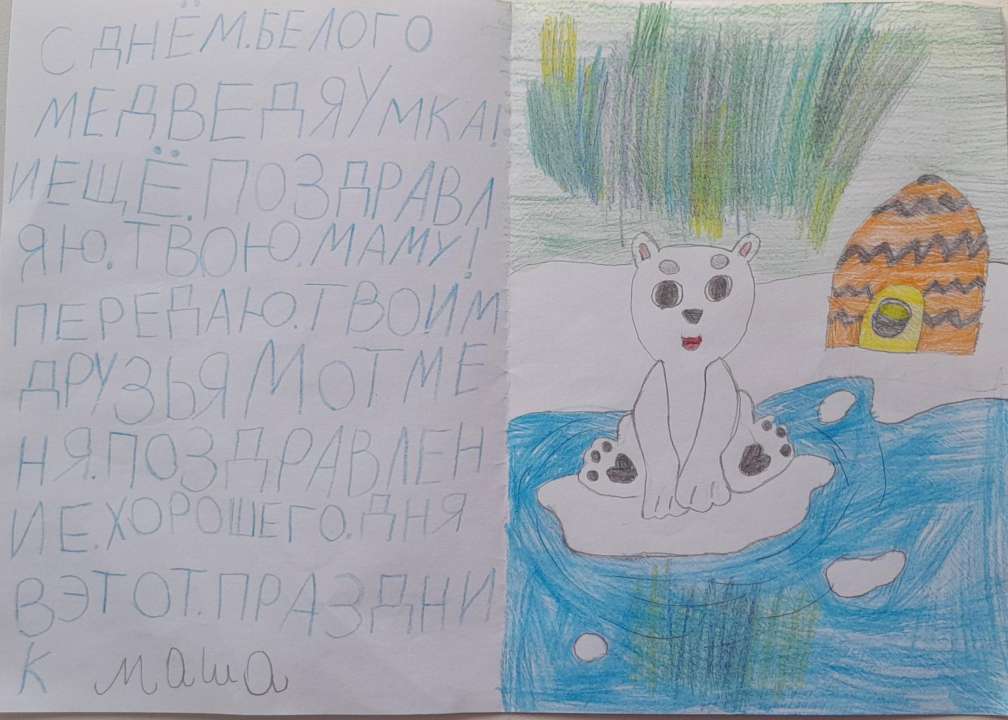 С ДНЁМ.БЕЛОГО
МЕДВЕДЯ УМКА!
И ЕЩЁ.ПОЗДРАВЛ
ЯЮ.ТВОЮ.МАМУ!
ПЕРЕДАЮ.ТВОИМ
ДРУЗЬЯМ ОТ МЕ
НЯ.ПОЗДРАВЛЕН
ИЕ.ХОРОШЕГО.ДНЯ
В ЭТОТ.ПРАЗДНИ
К маша